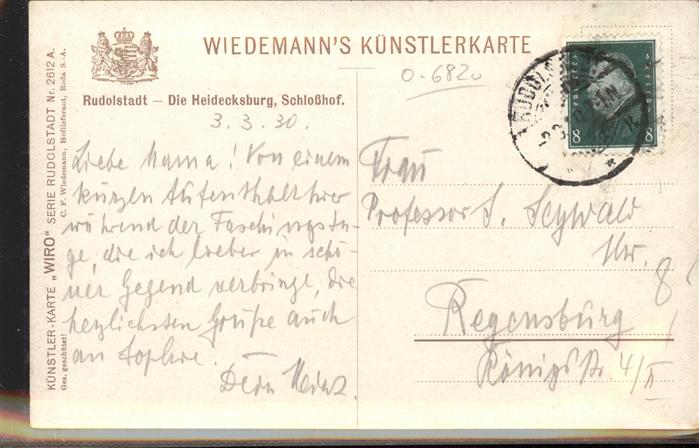 WIEDEMANN'S KÜNSTLERKARTE
0-6820
Rudolstadt — Die Heidecksburg, Schloßhof.
3. 3. 30.
Liebe Mama! Von einem
kurzen Aufenthalt hier
während der Faschingsta-
ge, die ich lieber in schö-
ner Gegend verbringe, die
herzlichsten Grüße auch
an Sophie.
Dein Heinz.
Frau
Professor S.
Regensburg
Königstr. 4/II
8
8
8
KÜNSTLER-KARTE „WIRO“ SERIE RUDOLSTADT Nr. 2612 A.
Ges. geschützt! C. F. Wiedemann, Hoflieferant, Roda S.-A.